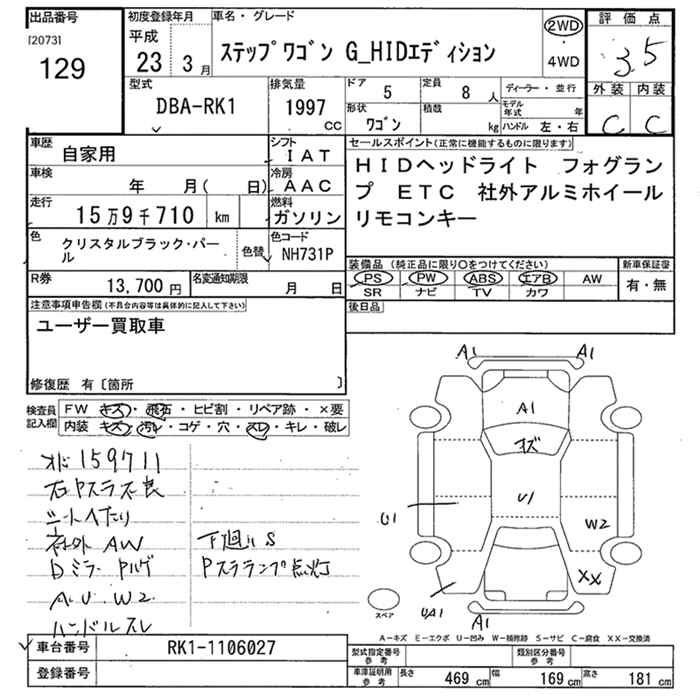 出品番号
[2073]
129
初度登録年月
平成
23 3月
車名・グレード
ステップワゴン G_HIDエディション
2WD
・
4WD
評価点
3.5
外装 内装
C C
型式
DBA-RK1
排気量
1997
CC
ドア 5
定員 8人
形状
ワゴン
積載 kg
ディーラー・並行
モデル年式 年
ハンドル 左・右
車歴
自家用
シフト
IAT
車検
年 月( 日)
冷房
AAC
走行
15万9千710 km
燃料
ガソリン
色
クリスタルブラック・パール
色替
色コード
NH731P
R券
13,700円
名変通知期限
月 日
セールスポイント(正常に機能するものに限ります)
HIDヘッドライト フォグラン
プ ETC 社外アルミホイール
リモコンキー
装備品(純正品に限り○をつけてください)
PS PW ABS エアB AW
SR ナビ TV カワ
新車保証書
有・無
後日品
注意事項申告欄(不具合内容等は具体的に記入して下さい)
ユーザー買取車
修復歴 有〔箇所 〕
検査員
記入欄
FW キズ・飛石・ヒビ割・リペア跡・×要
内装 キズ・汚れ・コゲ・穴・スレ・キレ・破レ
オド159711
石Pスラ不良
シートヘたり
社外 AW
下廻りS
Dミラー
Pスラランプ点灯
A.U.W2
ハンドルスレ
A1
A1
A1
キズ
U1
U1
W2
XX
UA1
A1
スペア
A-キズ E-エクボ U-凹み W-補修跡 S-サビ C-腐食 XX-交換済
車台番号
RK1-1106027
登録番号
型式指定番号
参考
類別区分番号
参考
車庫証明用
参考
長さ 469 cm
幅 169 cm
高さ 181 cm